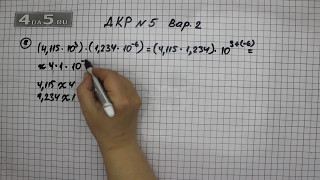 4DA5.RU
ДКР №5 Вар. 2
⑧ (4,115 · 10³) · (1,234 · 10⁻⁶) = (4,115 · 1,234) · 10³⁺⁽⁻⁶⁾ =
≈ 4 · 1 · 10⁻
4,115 ≈ 4
1,234 ≈ 1